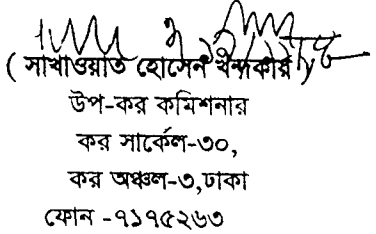 ( সাখাওয়াত হোসেন খন্দকার )
উপ-কর কমিশনার
কর সার্কেল-৩০,
কর অঞ্চল-৩,ঢাকা
ফোন -৭১৭৫২৬৩